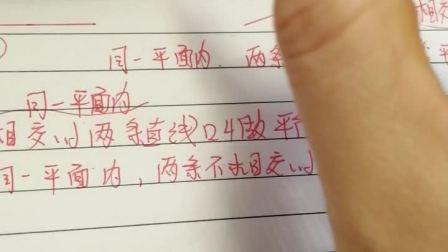 相交
同一平面内、两条
同一平面内
相交的两条直线叫做平行
同一平面内,两条不相交的